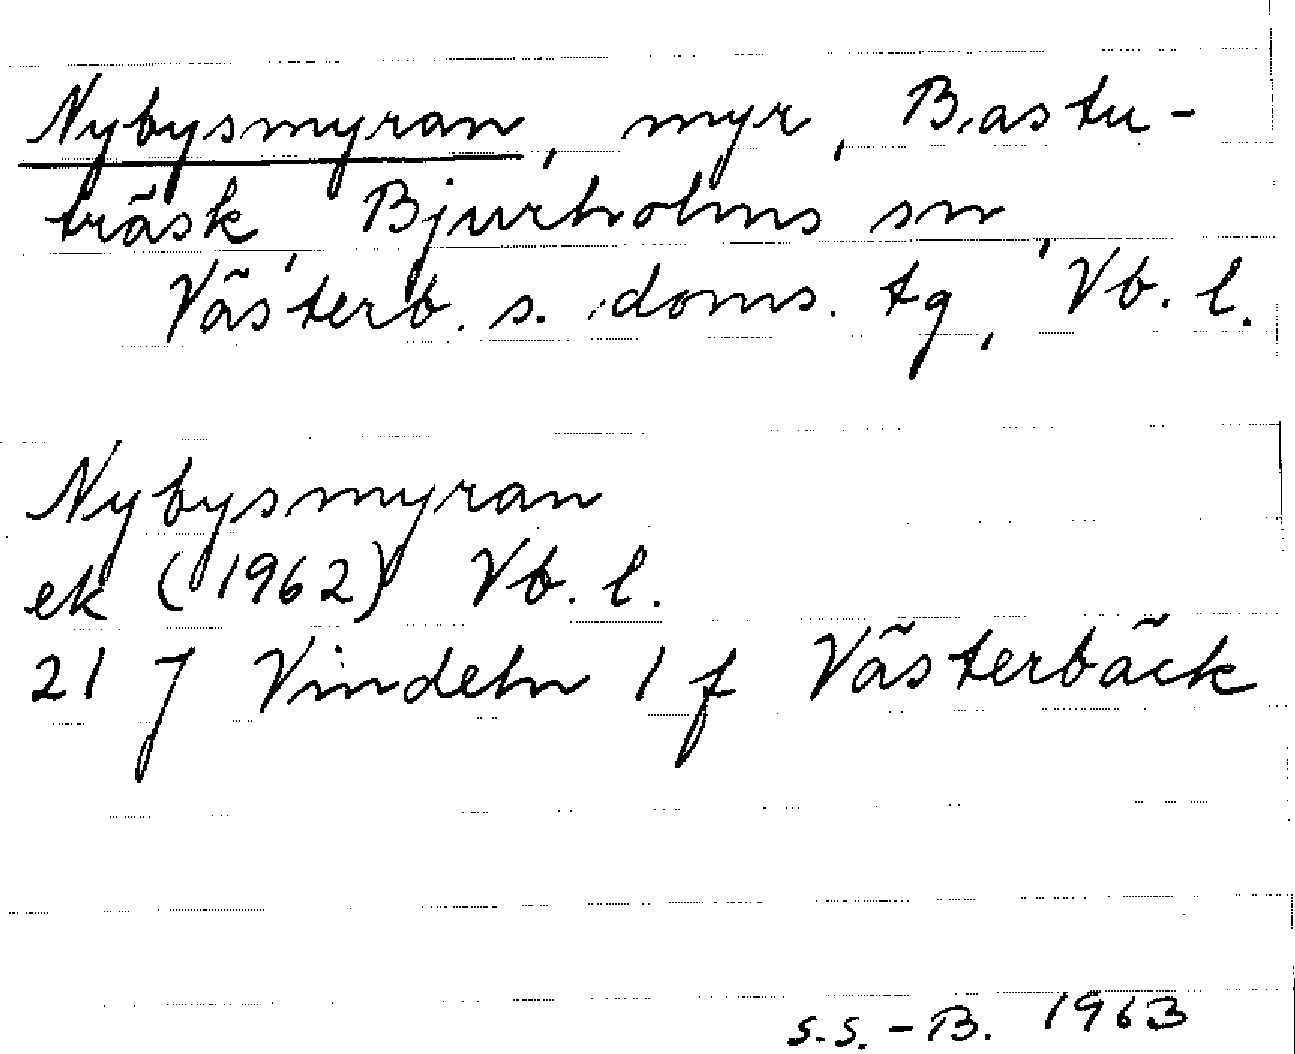 Nybysmyran, myr, Bastu-
träsk, Bjurholms sn,
Västerb. s. doms. tg, Vb. l.
Nybysmyran
ek (1962) Vb. l.
21 J Vindeln 1 f Västerbäck
s.s.-B. 1963